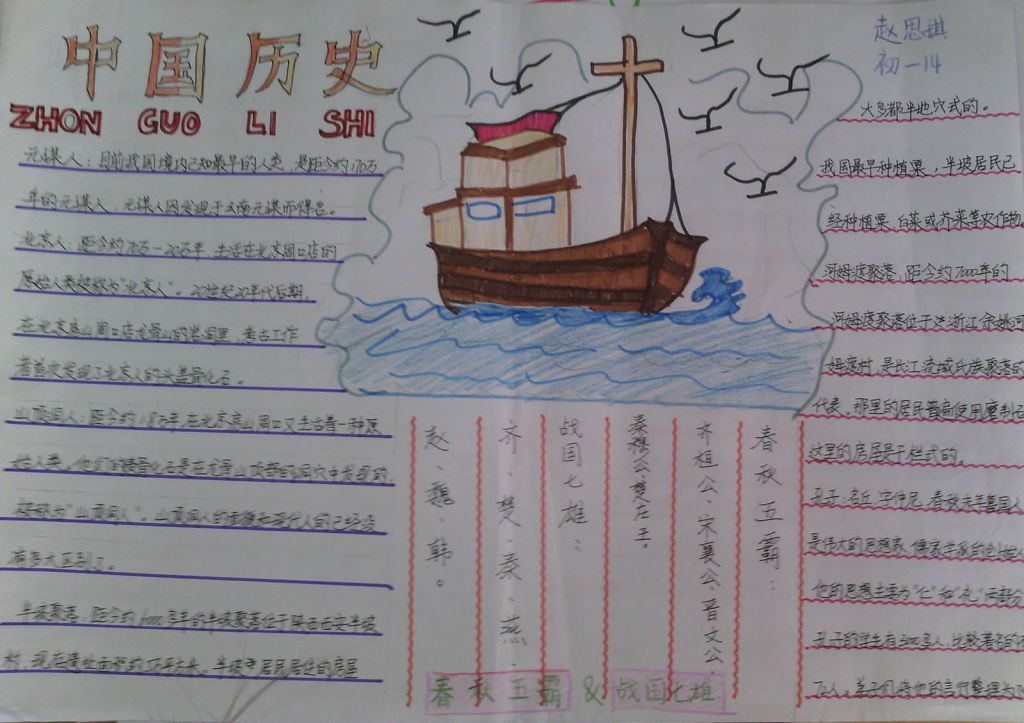 中国历史
ZHON GUO LI SHI
赵思琪
初一14
元谋人：目前我国境内已知最早的人类，是距今约170万
年的元谋人，元谋人因发现于云南元谋而得名。
北京人：距今约70万—20万年，生活在北京周口店的
原始人类被称为"北京人"。20世纪20年代后期，
在北京房山周口店龙骨山的岩洞里，考古工作
者首次发现了北京人的头盖骨化石。
山顶洞人：距今约1.8万年，在北京房山周口又生活着一种原
始人类，他们的骨化石是在龙骨山顶部的洞穴中发现的，
被称为"山顶洞人"。山顶洞人的面貌和现代人的已经没
有多大区别了。
半坡聚落，距今约6000多年的半坡聚落位于陕西西安半坡
村，现存遗址面积约5万平方米。半坡居民居住的房屋
大多都半地穴式的。
我国最早种植粟，半坡居民已
经种植粟、白菜或芥菜等农作物
河姆渡聚落，距今约7000年的
河姆渡聚落位于浙江余姚河
姆渡村，是长江流域氏族聚落的
代表。那里的居民普遍使用磨制石
这里的房屋是干栏式的。
孔子：名丘，字仲尼，春秋末年鲁国人
是伟大的思想家，儒家学派的创始人
他的思想主要为"仁"和"礼"两部分
孔子的学生有3000多人，比较著名的有
72人，弟子们将他的言行整理为
春秋五霸：
齐桓公、宋襄公、晋文公、
秦穆公楚庄王。
战国七雄：
齐、楚、秦、燕、
赵、魏、韩。
春秋五霸 & 战国七雄